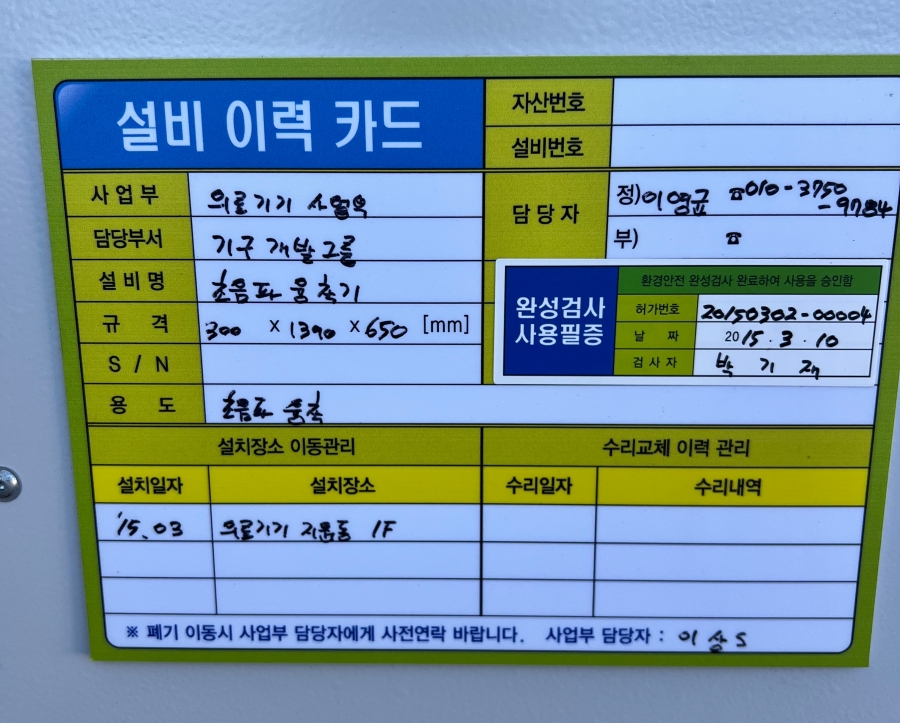 설비 이력 카드
자산번호
설비번호
사업부 의료기기 사업부
담당자 정)이영균 ☎010-3750-9784
부) ☎
담당부서 기구 개발그룹
설비명 초음파 융착기
규 격 300 x 1390 x 650 [mm]
S / N
용 도 초음파 융착
완성검사
사용필증
환경안전 완성검사 완료하여 사용을 승인함
허가번호 20150302-00004
날 짜 2015. 3. 10
검 사 자 박 기 재
설치장소 이동관리 수리교체 이력 관리
설치일자 설치장소 수리일자 수리내역
'15.03 의료기기 지원동 1F
※ 폐기 이동시 사업부 담당자에게 사전연락 바랍니다. 사업부 담당자 : 이